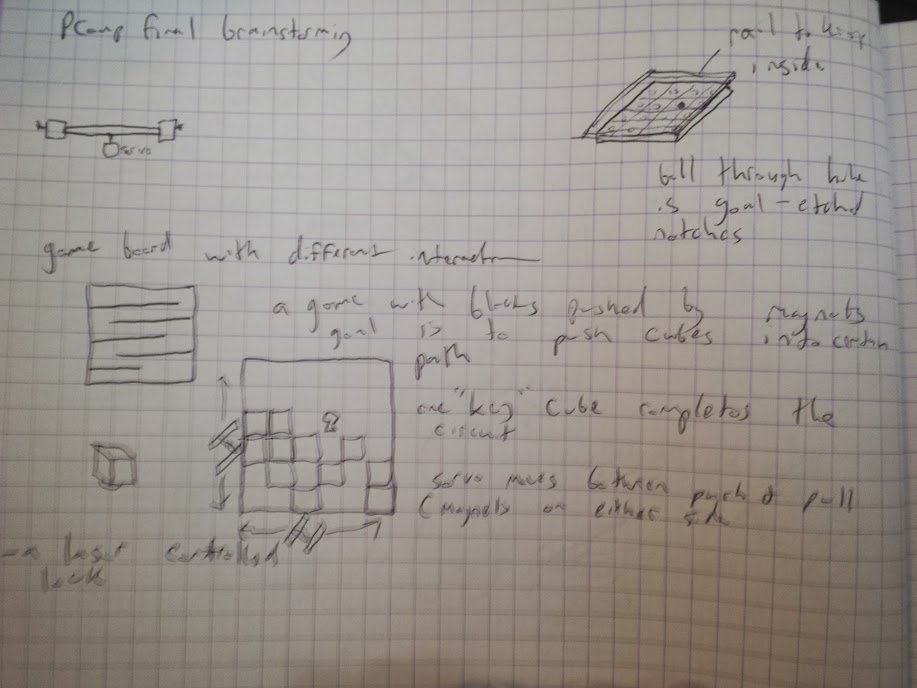 PComp final brainstorming
rail to keep
inside
servo
ball through hole
is goal - etched
notches
game board with different interaction
a game with blocks pushed by magnets
goal is to push cubes into certain
path
one "key" cube completes the
circuit
servo moves between push & pull
(magnets on either side
- a laser controlled
lock